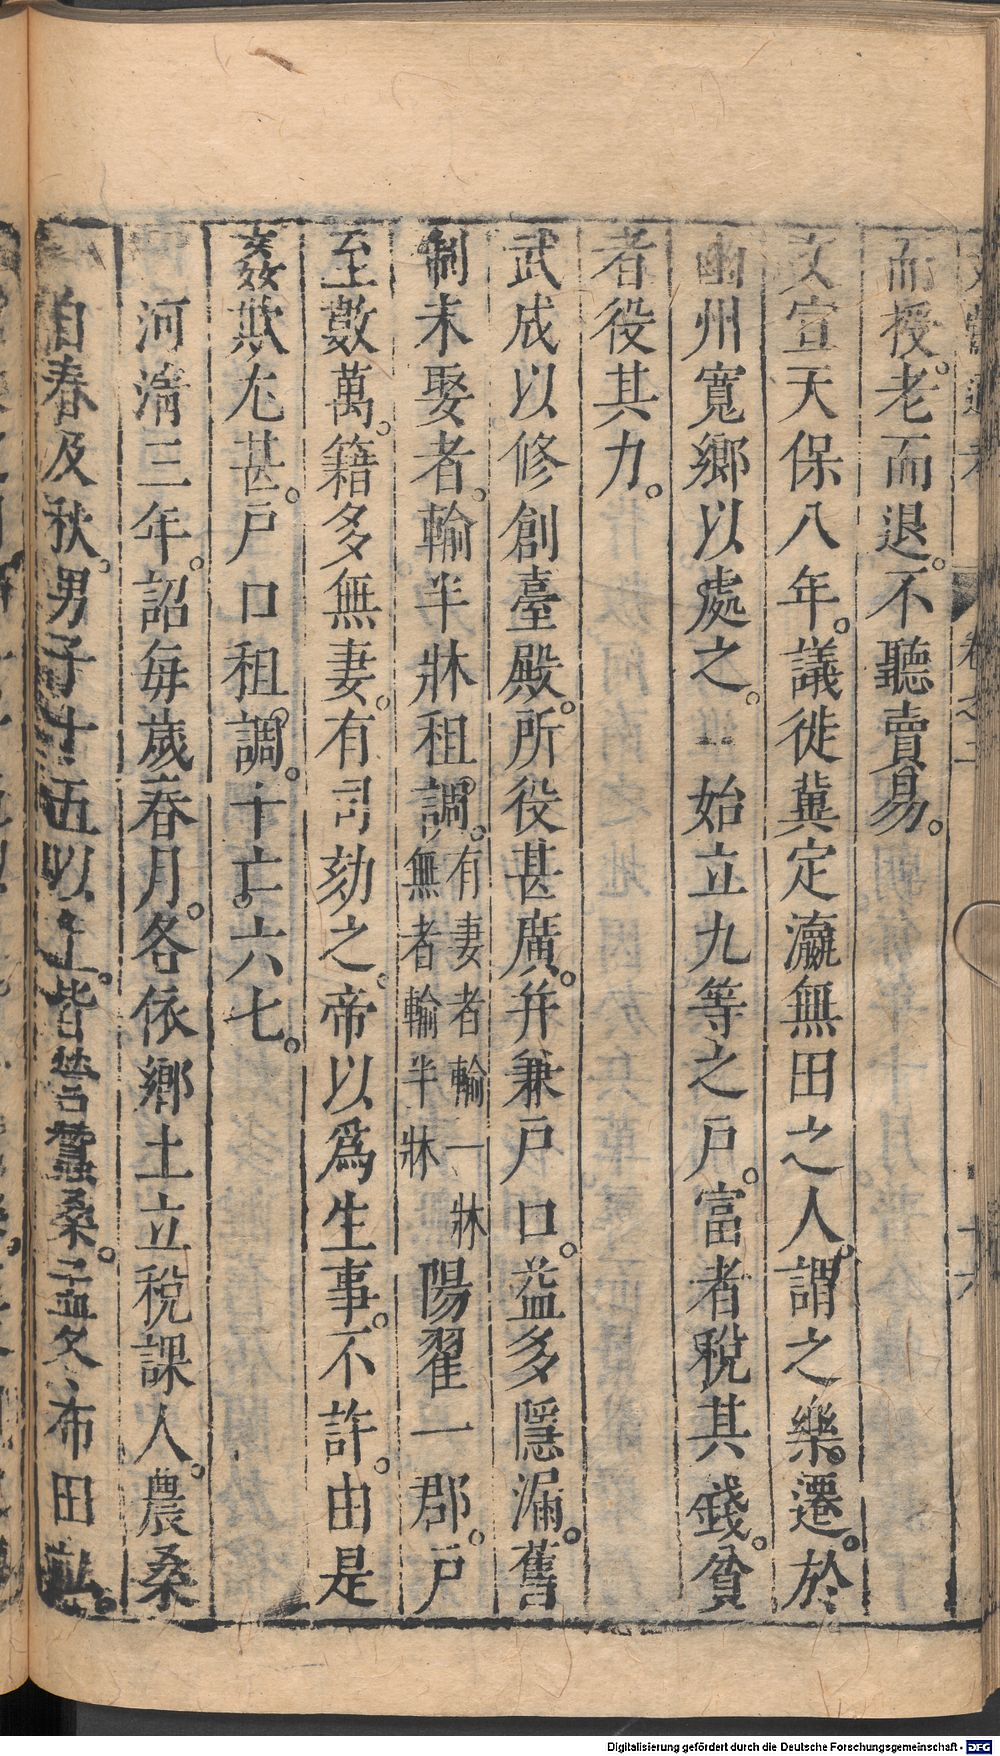 卷之二 十六
而授。老而退。不聽賣易。
文宣天保八年。議徙冀定瀛無田之人。謂之樂遷。於
幽州寬鄉以處之。始立九等之戶。富者稅其錢。貧
者役其力。
武成以修創臺殿。所役甚廣。并兼戶口。益多隱漏。舊
制未娶者。輸半牀租調。有妻者輸一牀無者輸半牀陽翟一郡。戶
至數萬。籍多無妻。有司劾之。帝以爲生事。不許。由是
姦欺尢甚。戶口租調。十亡六七。
河淸三年。詔每歲春月。各依鄉土立稅課人。農桑
自春及秋。男子十五以上。皆營蠶桑。孟冬布田畝。
Digitalisierung gefördert durch die Deutsche Forschungsgemeinschaft - DFG